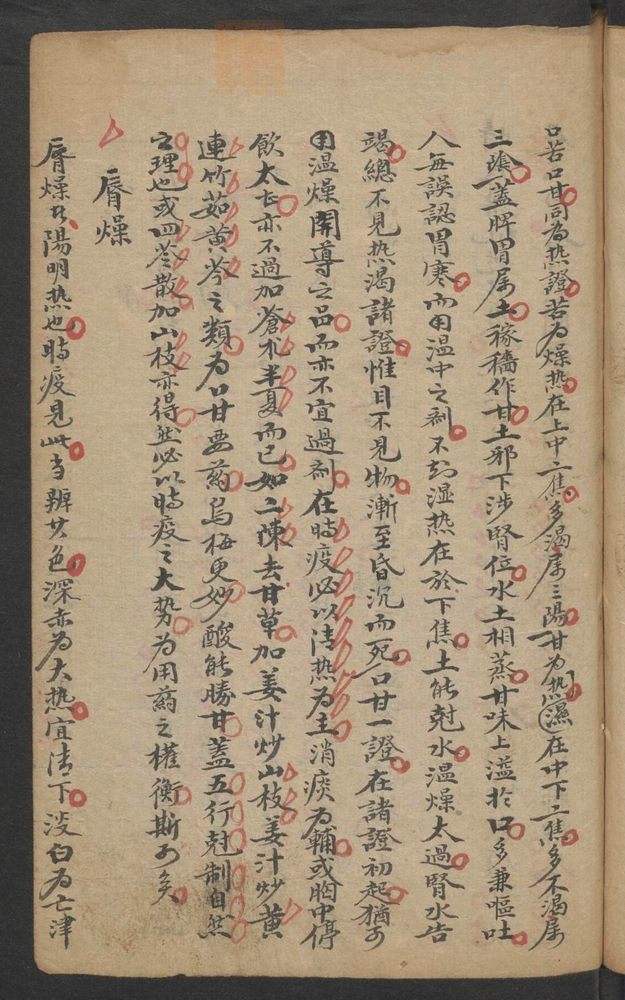 口苦口甘同為热證苦为燥热在上中二焦多渴属三陽甘为热濕在中下二焦多不渴属
三陰蓋脾胃属土稼穡作甘土邪下涉腎位水土相蒸甘味上溢於口多兼嘔吐
人每誤認胃寒而用温中之剤不知湿热在於下焦土能尅水温燥太過腎水告
竭總不見热渴諸證惟目不見物漸至昏沉而死口甘一證在諸證初起猶可
用温燥開導之品而亦不宜過剤在時疫必以清热为主消痰为輔或胸中停
飲太甚亦不過加蒼朮半夏而已如二陳去甘草加姜汁炒山枝姜汁炒黄
連竹茹黄芩之類为口甘要葯烏梅更妙酸能勝甘蓋五行尅制自然
之理也或四苓散加山枝亦得然必以時疫之大势为用葯之權衡斯可矣
唇燥
唇燥者陽明热也時疫見此当辨其色深赤为大热宜清下淡白为亡津